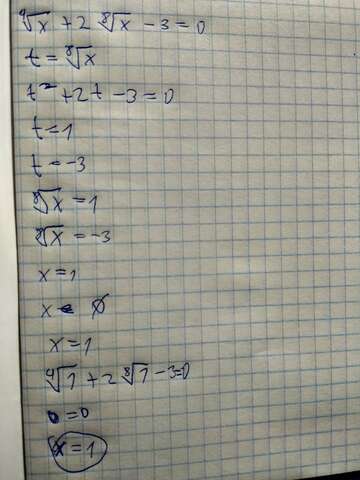 ⁴√x + 2 ⁸√x − 3 = 0
t = ⁸√x
t² + 2t − 3 = 0
t = 1
t = −3
⁸√x = 1
⁸√x = −3
x = 1
x ∅
x = 1
⁴√1 + 2 ⁸√1 − 3 = 0
0 = 0
x = 1